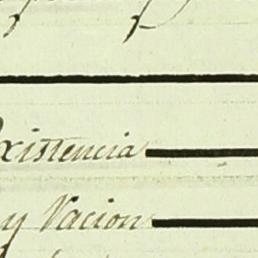 xistencia
y Vacion